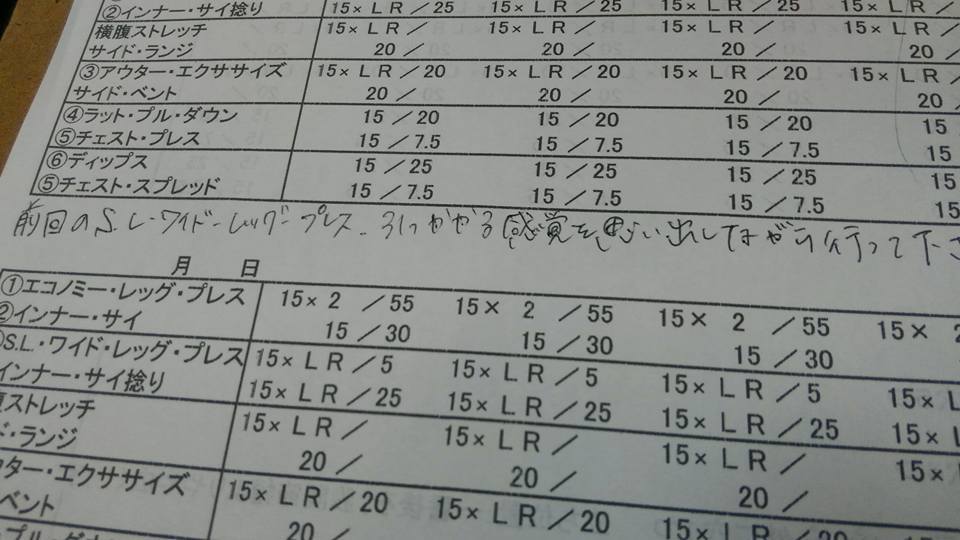 ②インナー・サイ捻り 15× L R ／25 15× L R ／25 15× L R ／25 15× L R ／
横腹ストレッチ 15× L R ／ 15× L R ／ 15× L R ／ 15× L R ／
サイド・ランジ 20 ／ 20 ／ 20 ／ 20 ／
③アウター・エクササイズ 15× L R ／20 15× L R ／20 15× L R ／20 15× L R
サイド・ベント 20 ／ 20 ／ 20 ／ 20 ／
④ラット・プル・ダウン 15 ／20 15 ／20 15 ／20 15
⑤チェスト・プレス 15 ／7.5 15 ／7.5 15 ／7.5 15
⑥ディップス 15 ／25 15 ／25 15 ／25 15
⑤チェスト・スプレッド 15 ／7.5 15 ／7.5 15 ／7.5 15
前回のS.L・ワイド・レッグ・プレス、引っかかる感覚を思い出しながら行って下さ
月 日
①エコノミー・レッグ・プレス 15× 2 ／55 15× 2 ／55 15× 2 ／55 15× 2
②インナー・サイ 15 ／30 15 ／30 15 ／30
S.L.・ワイド・レッグ・プレス 15× L R ／5 15× L R ／5 15× L R ／5 15× L
インナー・サイ捻り 15× L R ／25 15× L R ／25 15× L R ／25 15× L
ストレッチ 15× L R ／ 15× L R ／ 15× L R ／ 15×
・ランジ 20 ／ 20 ／ 20 ／
ター・エクササイズ 15× L R ／20 15× L R ／20 15× L R ／20
ベント 20 ／